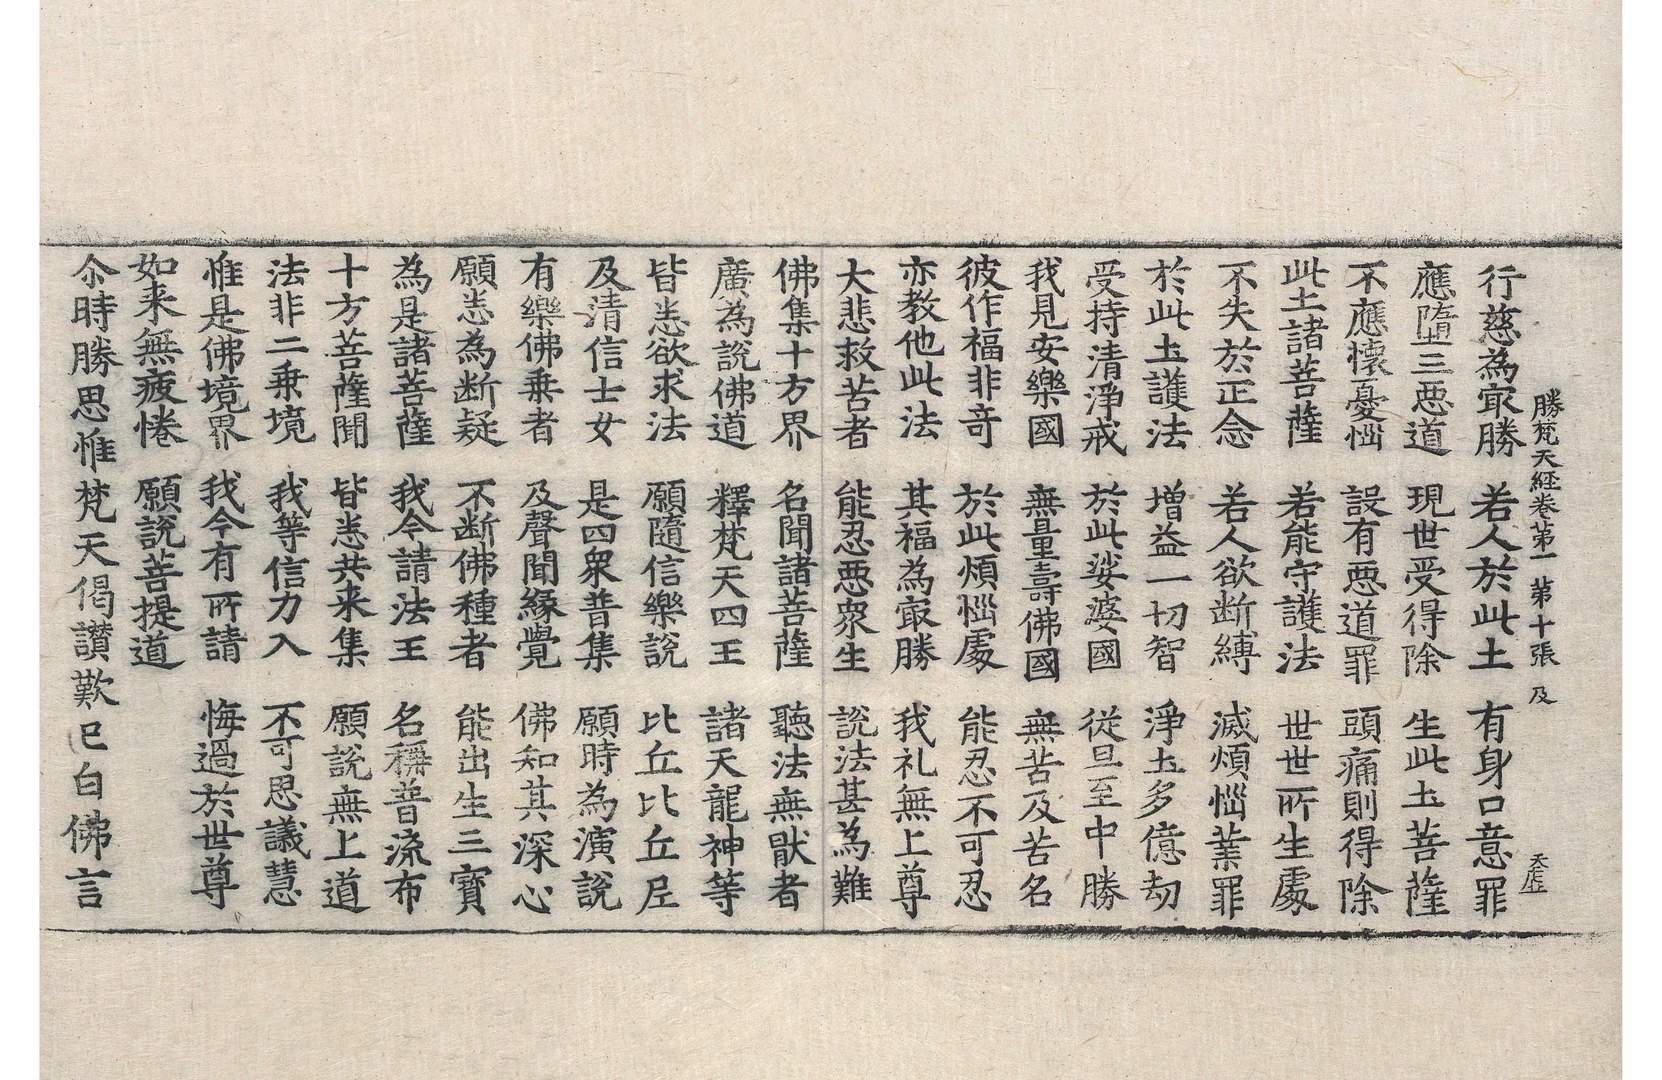 勝梵天経卷第一 第十張 及 天虛
行慈為冣勝 若人於此土 有身口意罪
應墮三惡道 現世受得除 生此土菩薩
不應懷憂惱 設有惡道罪 頭痛則得除
此土諸菩薩 若能守護法 世世所生處
不失於正念 若人欲断縛 滅煩惱業罪
於此土護法 增益一切智 淨土多億劫
受持清淨戒 於此娑婆國 從旦至中勝
我見安樂國 無量壽佛國 無苦及苦名
彼作福非奇 於此煩惱處 能忍不可忍
亦教他此法 其福為冣勝 我礼無上尊
大悲救苦者 能忍惡衆生 說法甚為難
佛集十方界 名聞諸菩薩 聽法無猒者
廣為說佛道 釋梵天四王 諸天龍神等
皆悉欲求法 願隨信樂說 比丘比丘尼
及清信士女 是四衆普集 願時為演說
有樂佛乗者 及聲聞緣覺 佛知其深心
願悉為断疑 不断佛種者 能出生三寶
為是諸菩薩 我今請法王 名稱普流布
十方菩薩聞 皆悉共来集 願說無上道
法非二乗境 我等信力入 不可思議慧
惟是佛境界 我今有所請 悔過於世尊
如来無疲惓 願說菩提道
尒時勝思惟梵天偈讃歎已白佛言